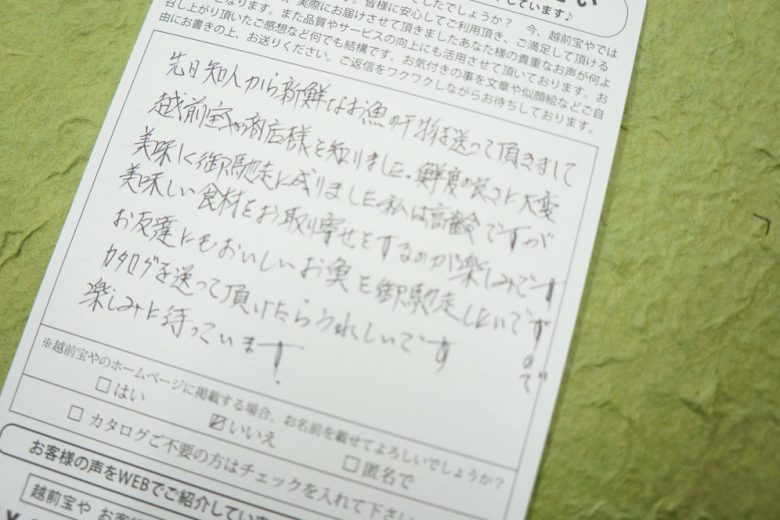 しています♪
でしたでしょうか? 今、越前宝やでは
皆様に安心してご利用頂き、ご満足して頂ける
となります。実際にお届けさせて頂きましたあなた様の貴重なお声が何よ
す。また品質やサービスの向上にも活用させて頂いております。お
召し上がり頂いたご感想など何でも結構です。お気付きの事を文章や似顔絵などご自
由にお書きの上、お送りください。ご返信をワクワクしながらお待ちしております。
先日知人から新鮮なお魚の干物を送って頂きまして
越前宝や商店様を知りました。鮮度の良さに大変
美味しく御馳走に成りました私は高齢ですが
美味しい食材をお取り寄せをするのが楽しみです
お友達にもおいしいお魚を御馳走したいですので
カタログを送って頂けたらうれしいです
楽しみに待っています!
※越前宝やのホームページに掲載する場合、お名前を載せてよろしいでしょうか?
□はい ☑いいえ □匿名で
□ カタログご不要の方はチェックを入れて下さい
お客様の声をWEBでご紹介してい
越前宝や お客様